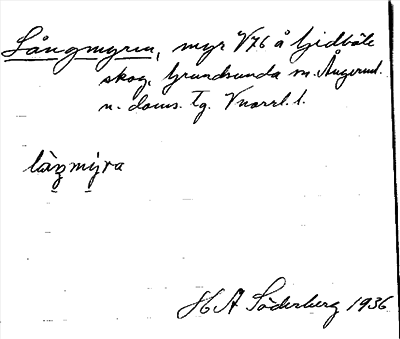 Långmyren, myr V76 å Gidböle
skog, Grundsunda sn. Ångerml.
n. doms. Tg. Vnorrl. l.
làŋmýra
H A Söderberg 1936